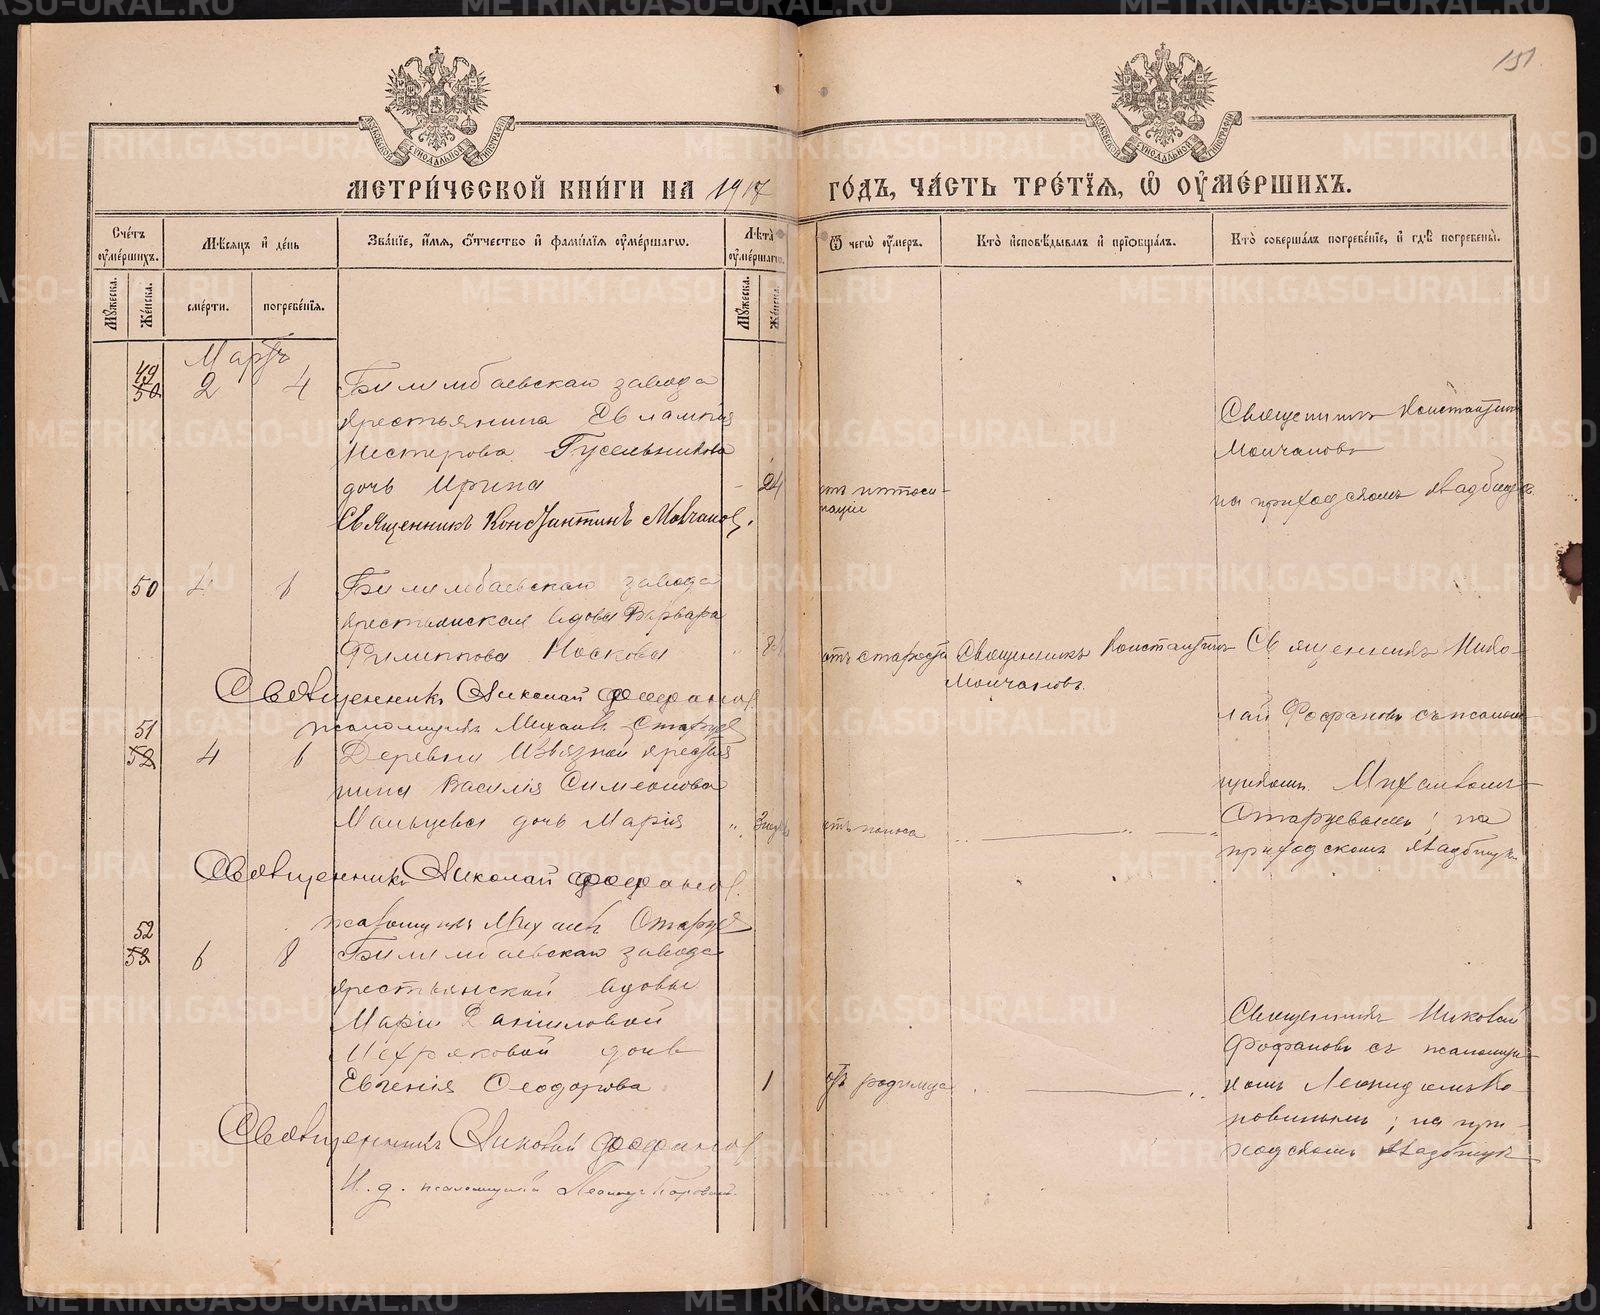 151.
МЕТРИЧЕСКОЙ КНИГИ НА 1917 ГОДЪ, ЧАСТЬ ТРЕТІЯ, Ѽ ОУМЕРШИХЪ.
Счетъ оумершихъ.
Мѣсяцъ и день
Званіе, имя, отчество и фамилія оумершагѡ.
Лѣта оумершагѡ.
Ѿ чегѡ оумеръ.
Кто исповѣдывалъ и пріобщалъ.
Кто совершалъ погребеніе, и гдѣ погребены.
Мужеска.
Женска.
смерти.
погребенія.
Мужеска.
Женска.
Мартъ
49
50
2
4
Билимбаевскаго завода
крестьянина Евлампія
Нестерова Гусельникова
дочь Ирина
24
Священникъ Константинъ
Молчановъ
на приходскомъ кладбищѣ.
Священникъ Константинъ Молчановъ.
50
4
6
Билимбаевскаго завода
крестьянская вдова Варвара
Филиппова Носкова
отъ старости
Священникъ Константинъ
Молчановъ.
Священникъ Нико-
лай Фофановъ съ псалом-
щикомъ Михаиломъ
Старцевымъ; на
приходскомъ кладбищѣ
Священникъ Николай Фофановъ.
псаломщикъ Михаилъ Старцевъ
51
52
4
6
Деревни Извязной крестья
нина Василія Симеонова
Мальцева дочь Марія
отъ поноса
Священникъ Николай Фофановъ.
псаломщикъ Михаилъ Старцевъ
52
53
6
8
Билимбаевскаго завода
крестьянской вдовы
Маріи Даниловой
Мехряковой дочь
Евгенія Ѳеодорова
1
отъ родимца
Священникъ Николай
Фофановъ съ псаломщи-
комъ Леонидомъ Ко
ровинымъ; на при-
ходскомъ кладбищѣ
Священникъ Николай Фофановъ
И. д. псаломщика Леонидъ Коровинъ.
METRIKI.GASO-URAL.RU